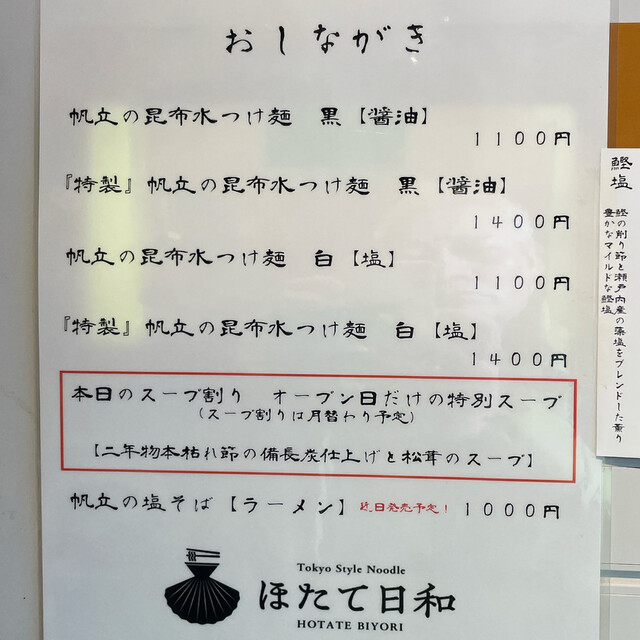 おしながき
帆立の昆布水つけ麺 黒【醤油】
1100円
『特製』帆立の昆布水つけ麺 黒【醤油】
1400円
帆立の昆布水つけ麺 白【塩】
1100円
『特製』帆立の昆布水つけ麺 白【塩】
1400円
本日のスープ割り オープン日だけの特別スープ
(スープ割りは月替わり予定)
【二年物本枯れ節の備長炭仕上げと松茸のスープ】
帆立の塩そば【ラーメン】近日発売予定! 1000円
Tokyo Style Noodle
ほたて日和
HOTATE BIYORI
鰹塩
鰹の削り節と瀬戸内産の藻塩をブレンドした薫り
豊かなマイルドな鰹塩